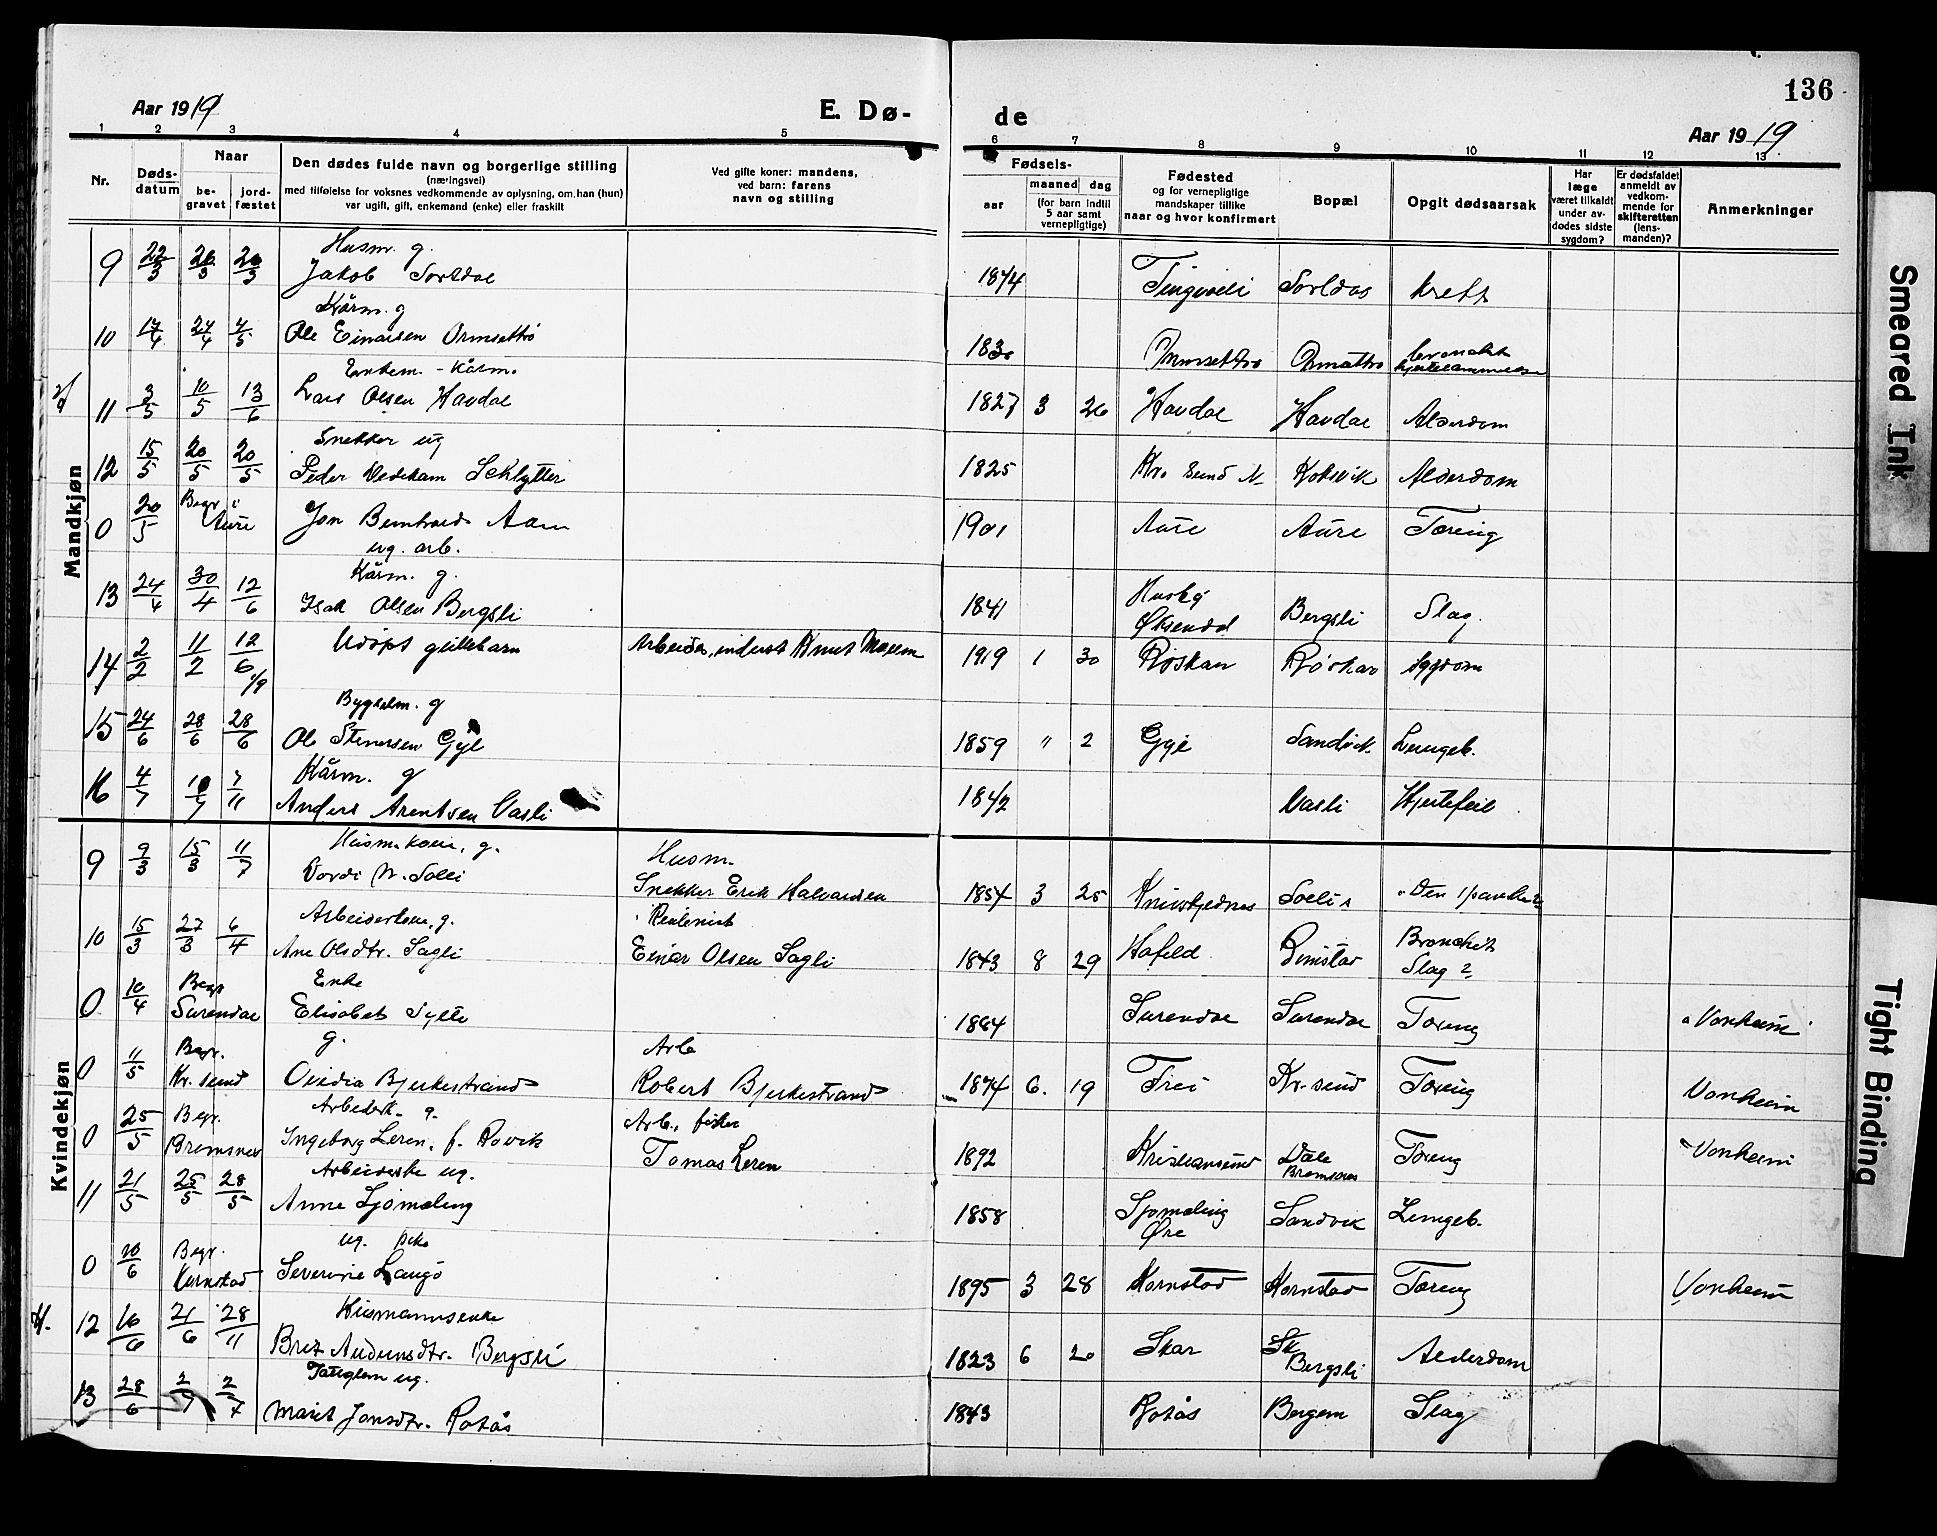 136
Aar 1919
E. Dø-
de
Aar 1919
1 2 3 4 5 6 7 8 9 10 11 12 13
Nr.
Døds-
datum
Naar
be-
gravet
jord-
fæstet
Den dødes fulde navn og borgerlige stilling
(næringsvei)
med tilføielse for voksnes vedkommende av oplysning, om han (hun)
var ugift, gift, enkemand (enke) eller fraskilt
Ved gifte koner: mandens,
ved barn: farens
navn og stilling
Fødsels-
aar
maaned
dag
(for barn indtil
5 aar samt
vernepligtige)
Fødested
og for vernepligtige
mandskaper tillike
naar og hvor konfirmert
Bopæl
Opgit dødsaarsak
Har
læge
været tilkaldt
under av-
dødes sidste
sygdom?
Er dødsfaldet
anmeldt av
vedkom-
mende for
skifteretten
(lens-
manden)?
Anmerkninger
Mandkjøn
Husm. g.
9 22/3 26/3 26/3 Jakob 1874 Kreft
Kårm. g
10 17/4 24/4 4/5 Ole Einarsen Ormsettrø
Enkem. - Kårm.
11 3/5 10/5 13/6 Lars Olsen Havdal 1827 3 26 Havdal Havdal Alderdom
Snekker ug
12 15/5 20/5 20/5 Peder Vedekam Schlytter 1825 Kr. sund N. Koksvik Alderdom
0 20/5 Begr i Aure Jon Bernhard Aam 1901 Aure Aure Tæring
ug. arb.
Kårm. g.
13 24/4 30/4 12/6 Isak Olsen Bergsli 1841 Husby Øksendal Bergsli Slag.
14 2/2 11/2 12/6 Udøpt guttebarn Arbeider, inderst Knut Moxem 1919 1 30 Røskar Røskar Sygdom
Bygselm. g
15 24/6 28/6 28/6 Ole Stenersen Gyl 1859 " 2 Gyl Sandvik Lungeb.
Kårm. g
16 4/7 10/7 7/11 Anders Arentsen Vasli 1842 Vasli Hjertefeil
Kvindekjøn
Husm.kone, g. Husm.
9 9/3 15/3 11/7 Snekker Erik Halvorsen 1854 3 25 "Den spanske"
Arbeiderkone, g.
10 15/3 27/3 6/4 Ane Olsdtr. Sagli Einar Olsen Sagli 1843 8 29 Hafeld Rimstad Bronchit
Slag?
Enke
0 10/4 Begr Surendal Elisabet Sylte 1864 Surendal Surendal Tæring "Vonheim"
g. Arb
0 11/5 Begr. Kr. sund Ovidia Bjerkestrand Robert Bjerkestrand 1874 6. 19 Frei Kr. sund Tæring Vonheim
Arbeiderk. g. Arb., fisker
0 25/5 Begr. Bremsnes Ingeborg Leren, f. Rovik Tomas Leren 1892 Kristiansund Dale Bremsnes Tæring "Vonheim
Arbeiderske ug.
11 21/5 25/5 28/5 Anne Sjømæling 1858 Sjømæling Øre Sandvik Lungeb.
ug. pike
0 10/6 Begr. Kornstad Severine Langø 1895 3 28 Kornstad Kornstad Tæring Vonheim
Husmannsenke
12 16/6 21/6 28/11 Brit Audunsdtr. Bergsli 1823 6 20 Skar Sk Bergsli Alderdom
ug.
13 28/6 2/7 2/7 Marit Jonsdtr. Rotås 1843 Rotås Bergem Slag
Smeared Ink
Tight Binding